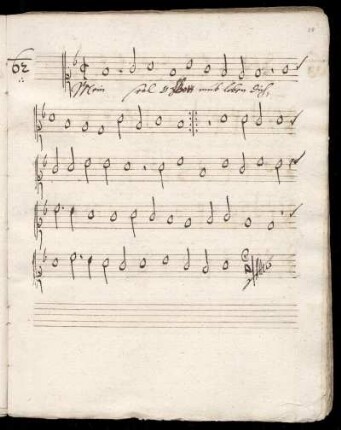 62
Mein seel o Herr muß loben dich,